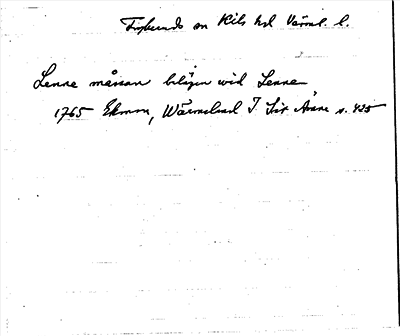 Frykerud sn Kils hd Värml. l.
Lenne måsan belägen wid Lenne
1765 Ekman, Wärmeland I Sir Åsne s. 425